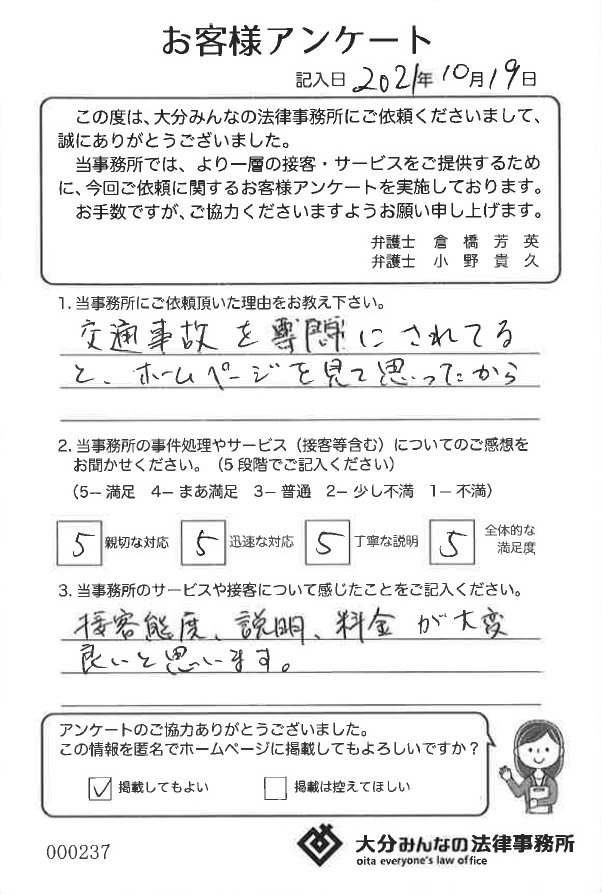 お客様アンケート
記入日 2021年10月19日
この度は、大分みんなの法律事務所にご依頼くださいまして、
誠にありがとうございました。
当事務所では、より一層の接客・サービスをご提供するため
に、今回ご依頼に関するお客様アンケートを実施しております。
お手数ですが、ご協力くださいますようお願い申し上げます。
弁護士 倉橋芳英
弁護士 小野貴久
1. 当事務所にご依頼頂いた理由をお教え下さい。
交通事故を専門にされてる
と、ホームページを見て思ったから
2. 当事務所の事件処理やサービス（接客等含む）についてのご感想を
お聞かせください。（5段階でご記入ください）
（5－満足 4－まあ満足 3－普通 2－少し不満 1－不満）
5 親切な対応 5 迅速な対応 5 丁寧な説明 5 全体的な満足度
3. 当事務所のサービスや接客について感じたことをご記入ください。
接客態度、説明、料金が大変
良いと思います。
アンケートのご協力ありがとうございました。
この情報を匿名でホームページに掲載してもよろしいですか？
✓ 掲載してもよい □ 掲載は控えてほしい
000237
大分みんなの法律事務所
oita everyone's law office